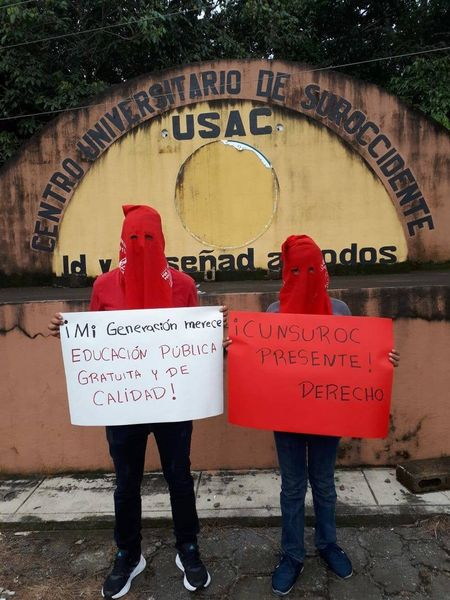 CENTRO UNIVERSITARIO DE SUROCCIDENTE
USAC
Id y enseñad a todos
¡Mi Generación merece
EDUCACIÓN PÚBLICA
GRATUITA Y DE
CALIDAD!
¡CUNSUROC
PRESENTE!
DERECHO